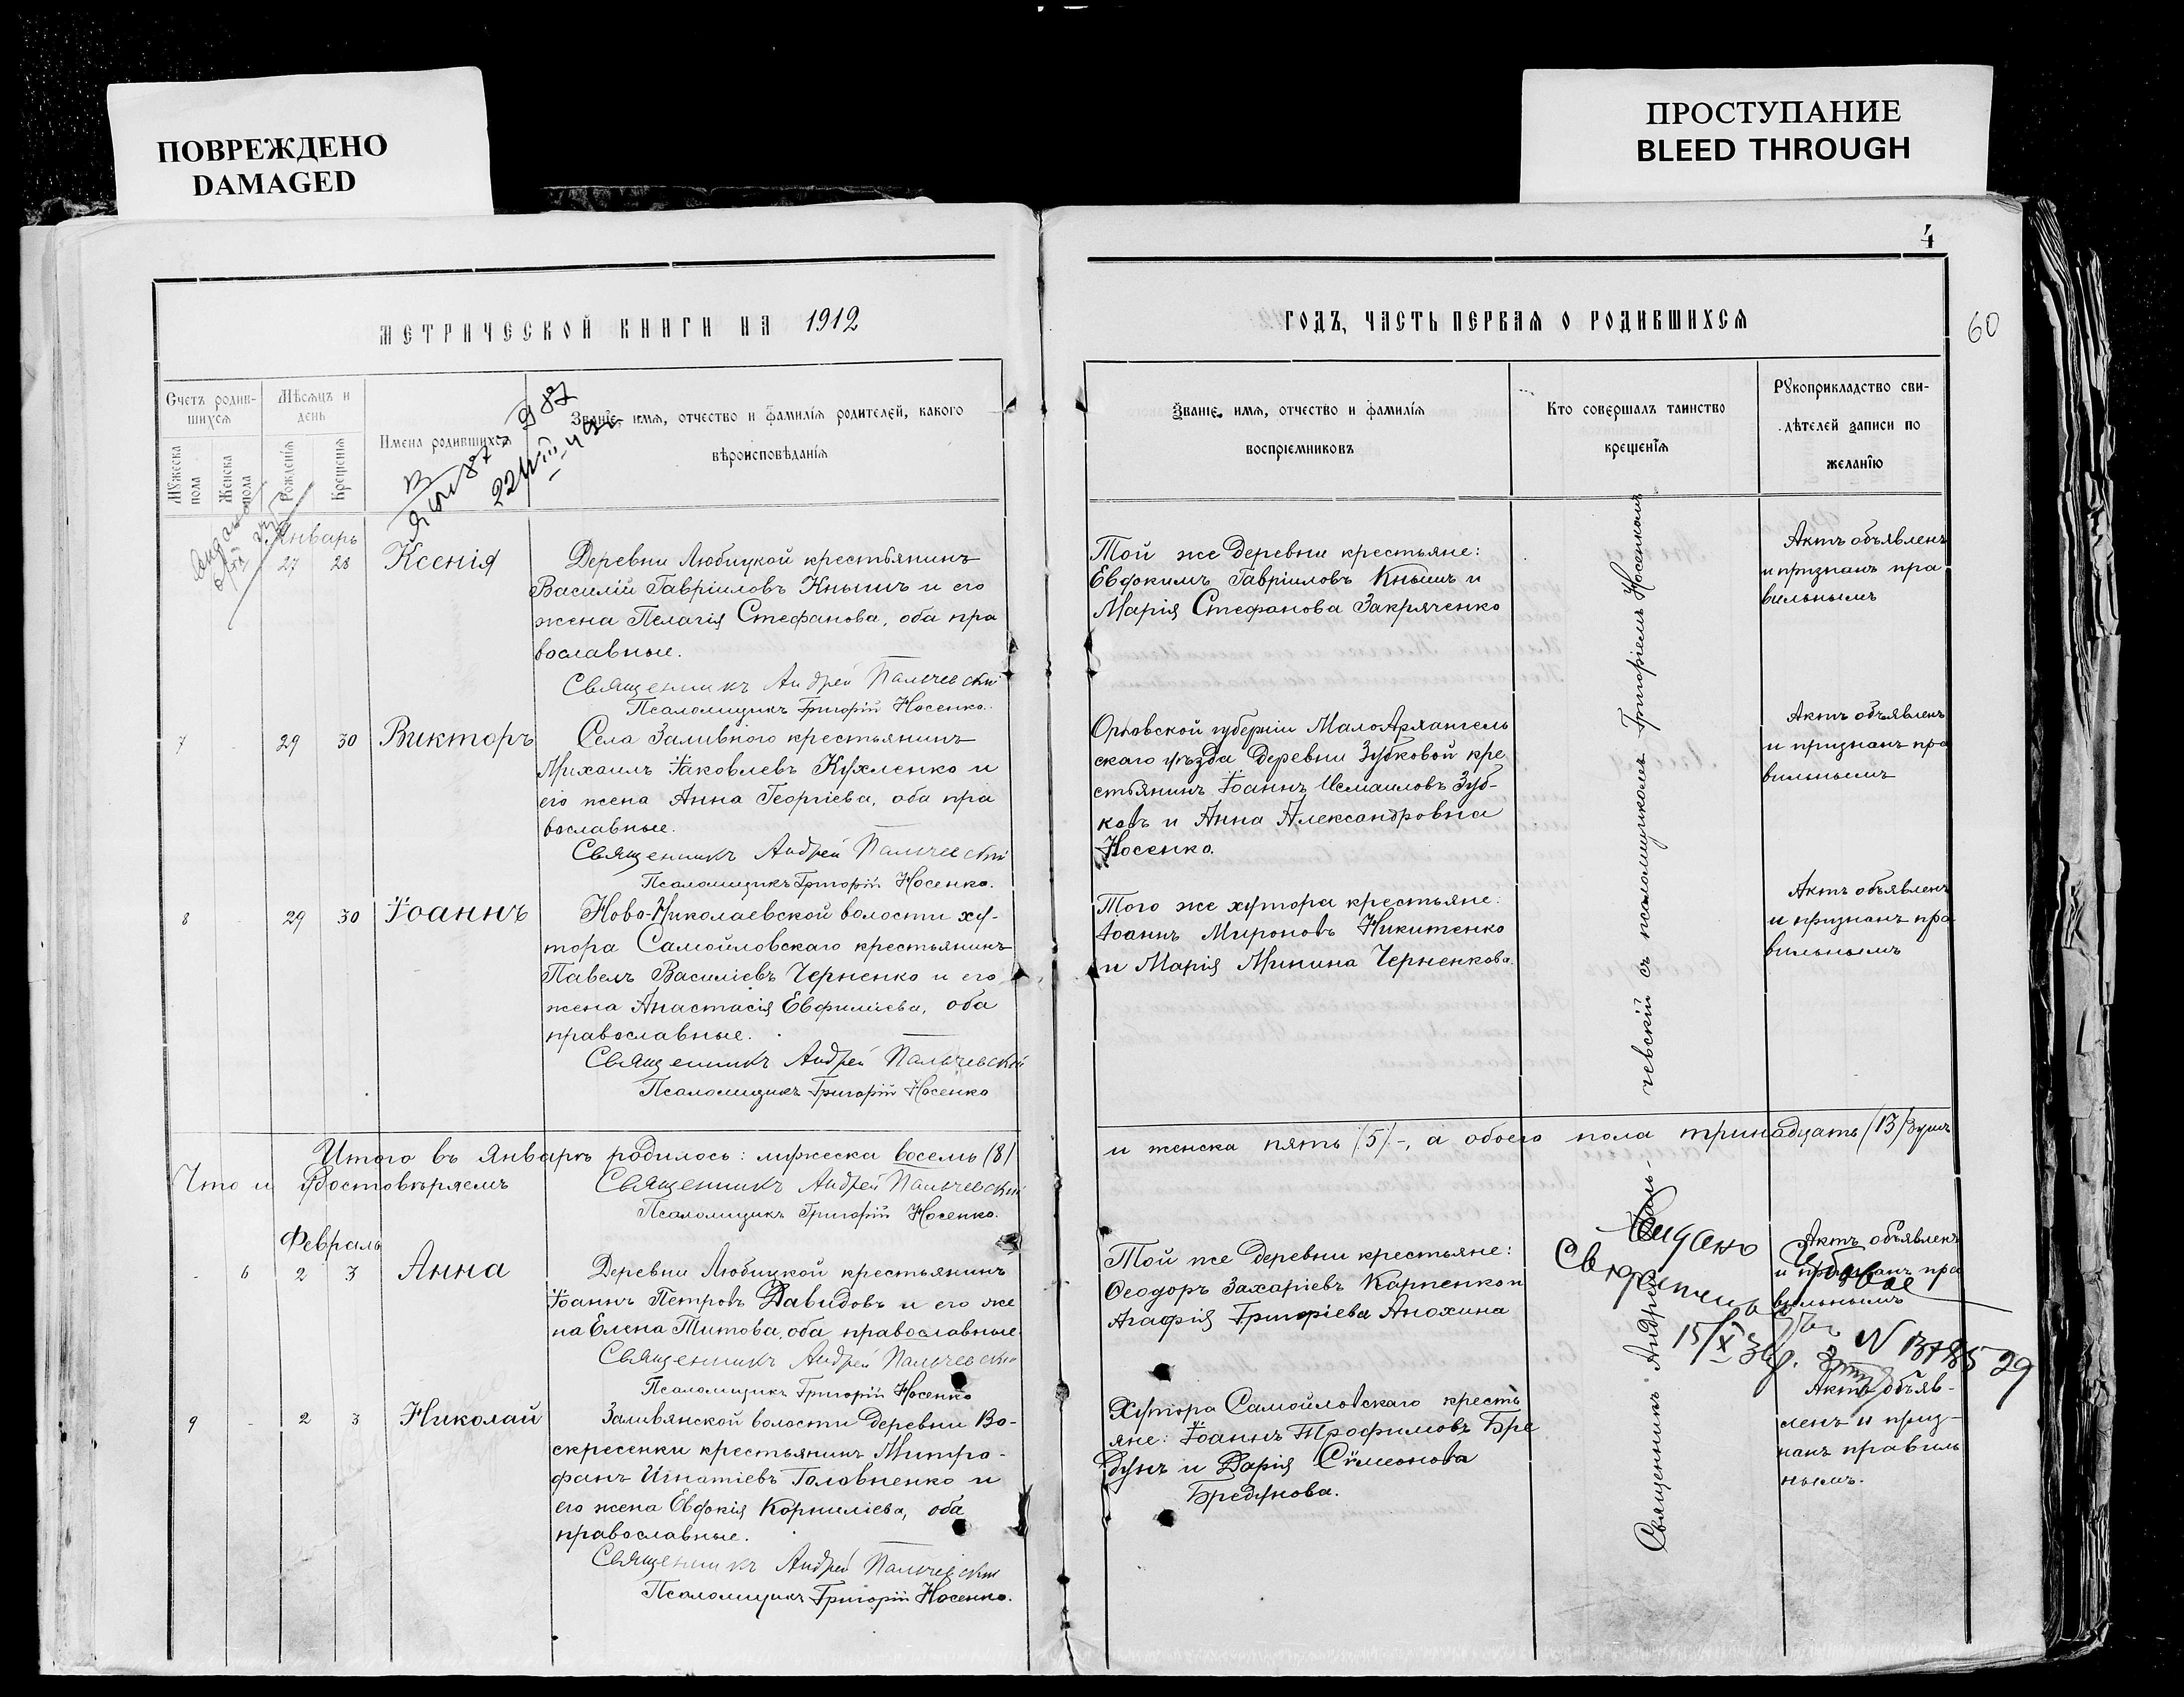 ПОВРЕЖДЕНО
DAMAGED
ПРОСТУПАНИЕ
BLEED THROUGH
4
60
МЕТРИЧЕСКОЙ КНИГИ НА 1912
ГОДЪ, ЧАСТЬ ПЕРВАЯ О РОДИВШИХСЯ
Счетъ родив-
шихся
Мужеска
пола
Женска
пола
Мѣсяцъ и
день
Рожденія
Крещенія
Имена родившихся
Званіе, имя, отчество и фамилія родителей, какого
вѣроисповѣданія
Званіе, имя, отчество и фамилія
воспріемниковъ
Кто совершалъ таинство
крещенія
Рукоприкладство сви-
дѣтелей записи по
желанію
Январь
27 28 Ксенія
Деревни Любицкой крестьянинъ
Василій Гавріиловъ Кнышъ и его
жена Пелагія Стефанова, оба пра
вославные.
Священникъ Андрей Пальчевскій
Псаломщикъ Григорій Носенко.
Той же деревни крестьяне:
Евдокимъ Гавріиловъ Кнышъ и
Марія Стефанова Закряченко
Актъ объявленъ
и признанъ пра
вильнымъ
7 - 29 30 Викторъ
Села Заливного крестьянинъ
Михаилъ Іаковлевъ Кухленко и
его жена Анна Георгіева, оба пра
вославные.
Священникъ Андрей Пальчевскій
Псаломщикъ Григорій Носенко.
Орловской губерніи МалоАрхангель
скаго уѣзда деревни Зубковой кре
стьянинъ Іоаннъ Исмаиловъ Зуб-
ковъ и Анна Александровна
Носенко.
Актъ объявленъ
и признанъ пра
вильнымъ
8 - 29 30 Іоаннъ
Ново-Николаевской волости ху-
тора Самойловскаго крестьянинъ
Павелъ Василіевъ Черненко и его
жена Анастасія Евфиміева, оба
православные.
Священникъ Андрей Пальчевскій
Псаломщикъ Григорій Носенко
Того же хутора крестьяне:
Іоаннъ Мироновъ Никитенко
и Марія Минина Черненкова.
Актъ объявленъ
и признанъ пра
вильнымъ
Итого въ Январѣ родилось: мужеска восемь (8)
и женска пять (5)-, а обоего пола тринадцать (13) душъ
Что и удостовѣряемъ
Священникъ Андрей Пальчевскій
Псаломщикъ Григорій Носенко.
Февраль
- 6 2 3 Анна
Деревни Любицкой крестьянинъ
Іоаннъ Петровъ Давидовъ и его же
на Елена Титова, оба православные.
Священникъ Андрей Пальчевскій
Псаломщикъ Григорій Носенко
Той же деревни крестьяне:
Ѳеодоръ Захаріевъ Карпенко и
Агафія Григоріева Анохина
Актъ объявленъ
и признанъ пра
вильнымъ
Видано
15/X 36
9 - 2 3 Николай
Заливянской волости деревни Во-
скресенки крестьянинъ Митро-
фанъ Игнатіевъ Головненко и
его жена Евдокія Корниліева, оба
православные.
Священникъ Андрей Пальчевскій
Псаломщикъ Григорій Носенко.
Хутора Самойловскаго кресть
яне: Іоаннъ Трофимовъ Бре
дунъ и Дарія Сѵмеонова
Бредунова.
Актъ объяв-
ленъ и приз-
нанъ правиль
нымъ.
Священникъ Андрей Паль-
чевскій съ псаломщикомъ Григоріемъ Носенкомъ